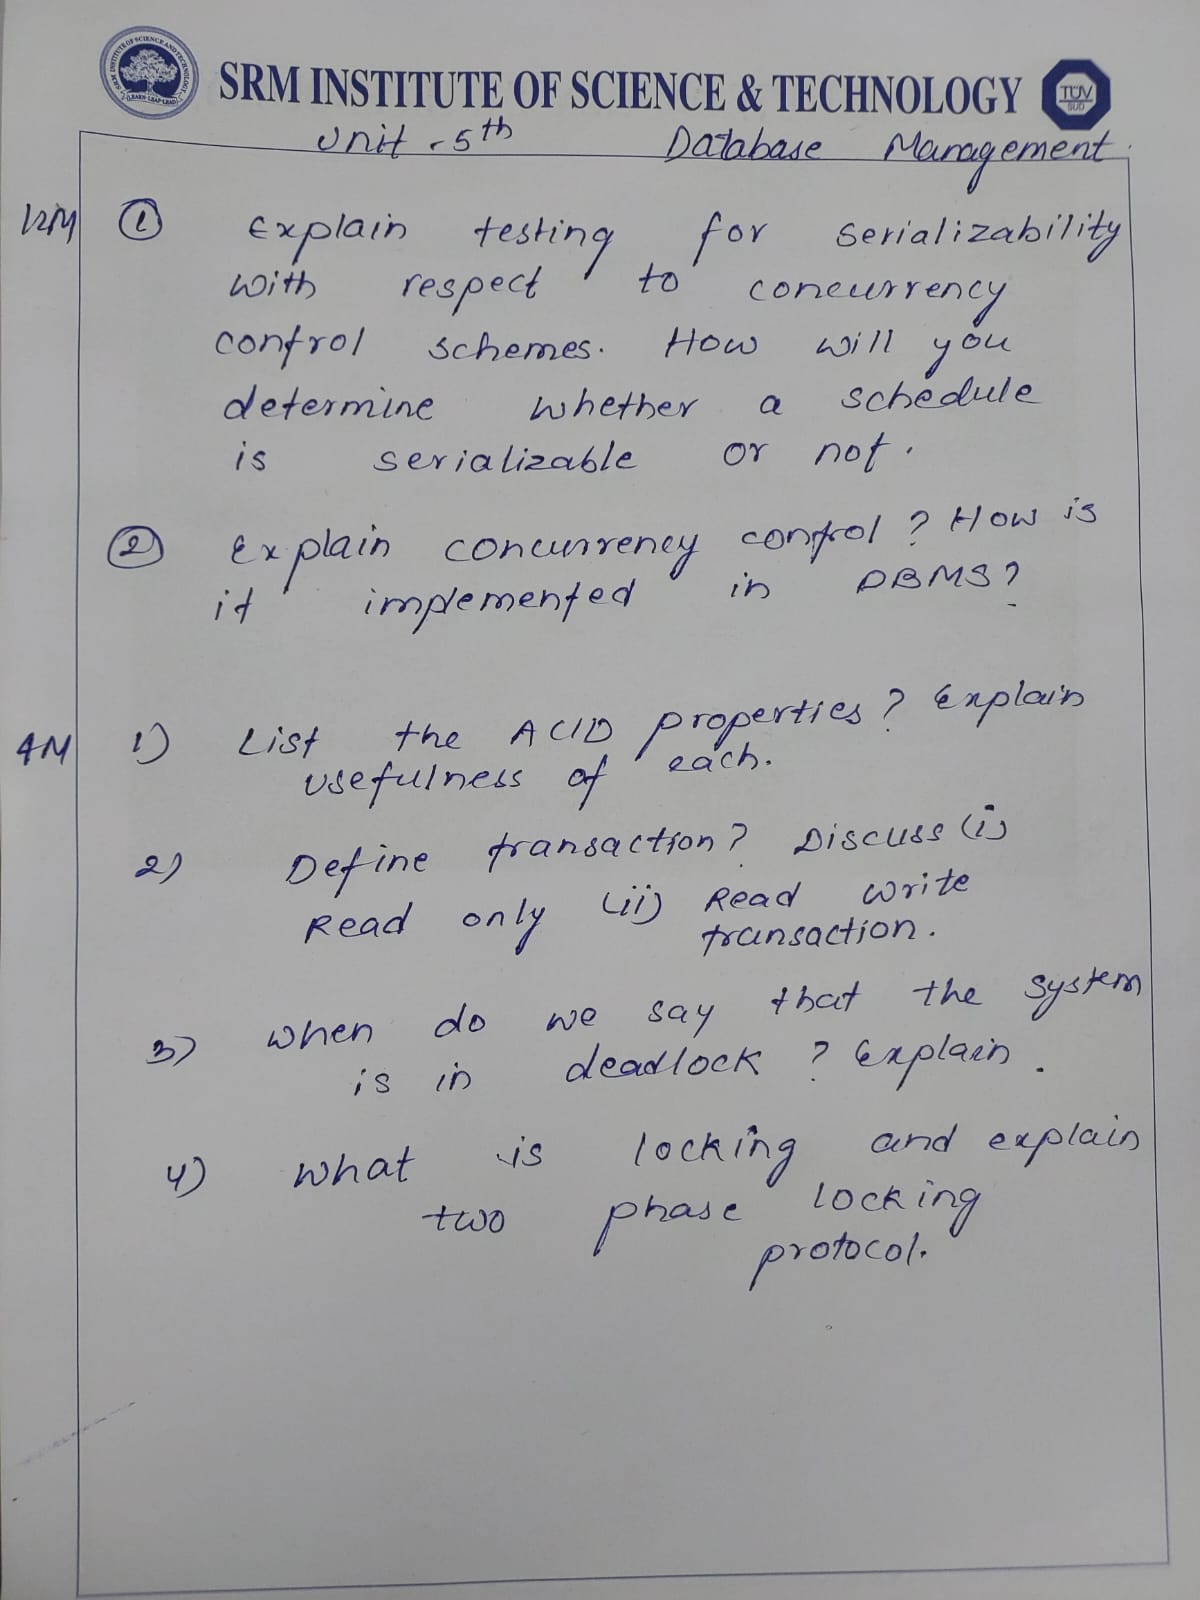 SRM INSTITUTE OF SCIENCE AND TECHNOLOGY
LEARN-LEAP-LEAD
SRM INSTITUTE OF SCIENCE & TECHNOLOGY
TÜV
SÜD
Unit - 5th Database Management.
12M ① Explain testing for serializability
with respect to concurrency
control schemes. How will you
determine whether a schedule
is serializable or not.
② Explain concurrency control? How is
it implemented in DBMS?
4M 1) List the ACID properties? Explain
usefulness of each.
2) Define transaction? Discuss (i)
Read only (ii) Read write
transaction.
3) when do we say that the system
is in deadlock? Explain.
4) what is locking and explain
two phase locking
protocol.